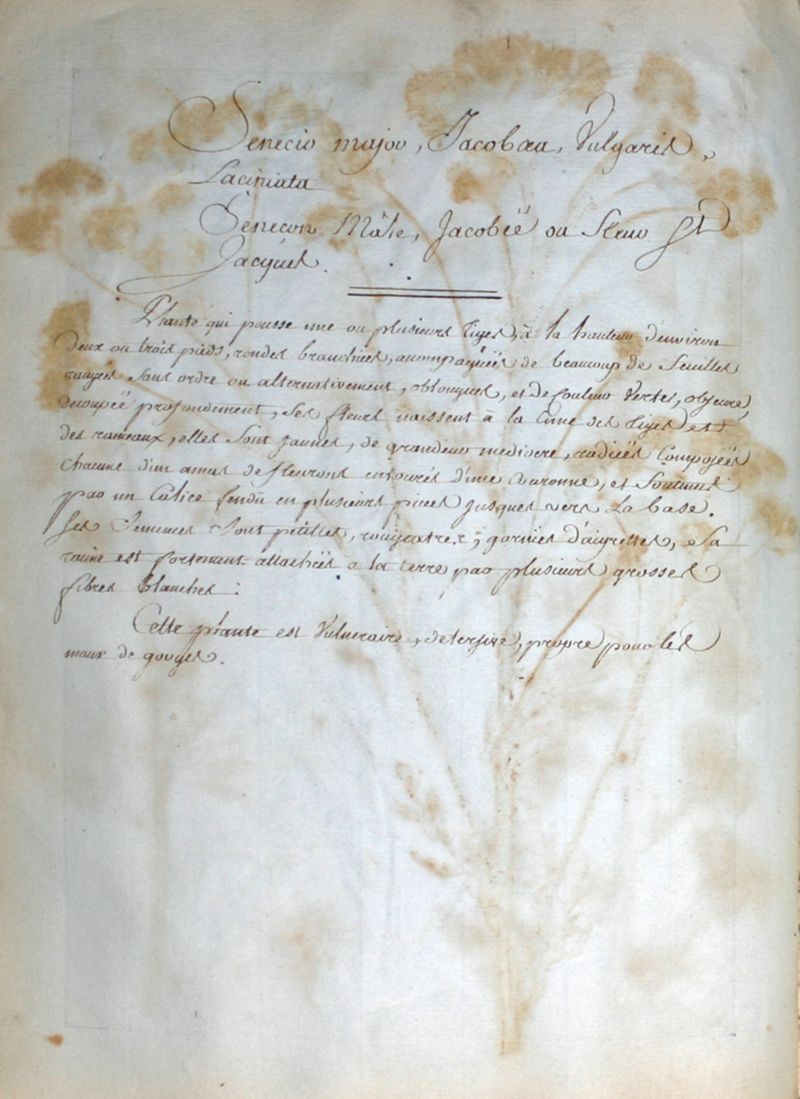 Senecio major, Jacobæa, Vulgaris,
Laciniata
Senecon Mâle, Jacobéé ou fleur St
Jacques.
Plante qui pousse une ou plusieurs Tiges, à la hauteur d'environ
deux ou trois pieds, rondes branchües, accompagnéés de beaucoup de feuilles
rangés sans ordre ou alternativement, oblongues, et de Couleur Vertes, obscure,
decoupéé profondement, Ses fleurs naissent à la Cime des Tiges et
des rameaux, elles sont jaunes, de grandeur mediocre, radiéés Composéés
chacune d'un amas de fleurons entourés d'une Couronne, et soutenus
par un Calice fendu en plusieurs pieces jusques vers La base.
Ses Semences sont petittes, rougeatres, garnies d'aigrettes, Sa
racine est fortement attachéé a la terre par plusieurs grosses
fibres blanches :
Cette plante est Vulneraire, detersive, propre pour les
maux de gorges.